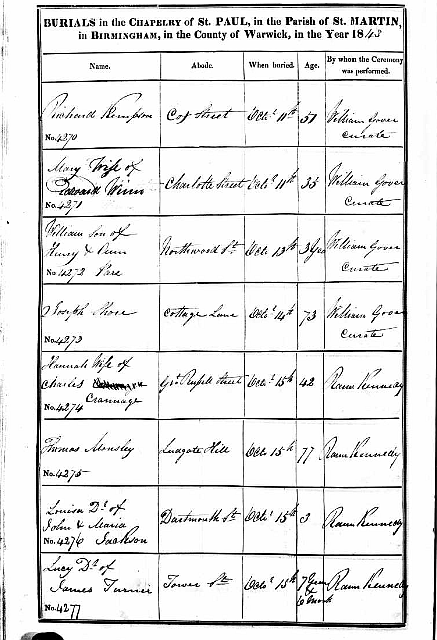 BURIALS in the CHAPELRY of ST. PAUL, in the Parish of ST. MARTIN,
in BIRMINGHAM, in the County of Warwick, in the Year 1843
Name. Abode. When buried. Age. By whom the Ceremony was performed.
Richard Kempson Cox Street Octr 11th 51 William Gover
Curate
No. 4270
Mary Wife of
Edward Winn Charlotte Street Octr 11th 35 William Gover
Curate
No. 4271
William Son of
Henry & Ann Northwood St Octr 13th 3 Yrs William Gover
Curate
No. 4272 Pare
Joseph Shore Cottage Lane Octr 14th 73 William Gover
Curate
No. 4273
Hannah Wife of
Charles Gt Russell Street Octr 15th 42 Rann Kennedy
Crannage
No. 4274
Thomas Ludgate Hill Octr 15th 77 Rann Kennedy
No. 4275
Louisa Dr of
John & Maria Dartmouth St Octr 15th 3 Rann Kennedy
No. 4276 Jackson
Lucy Dr of
James Turner Tower St Octr 15th 7 Years & 10 Month Rann Kennedy
No. 4277